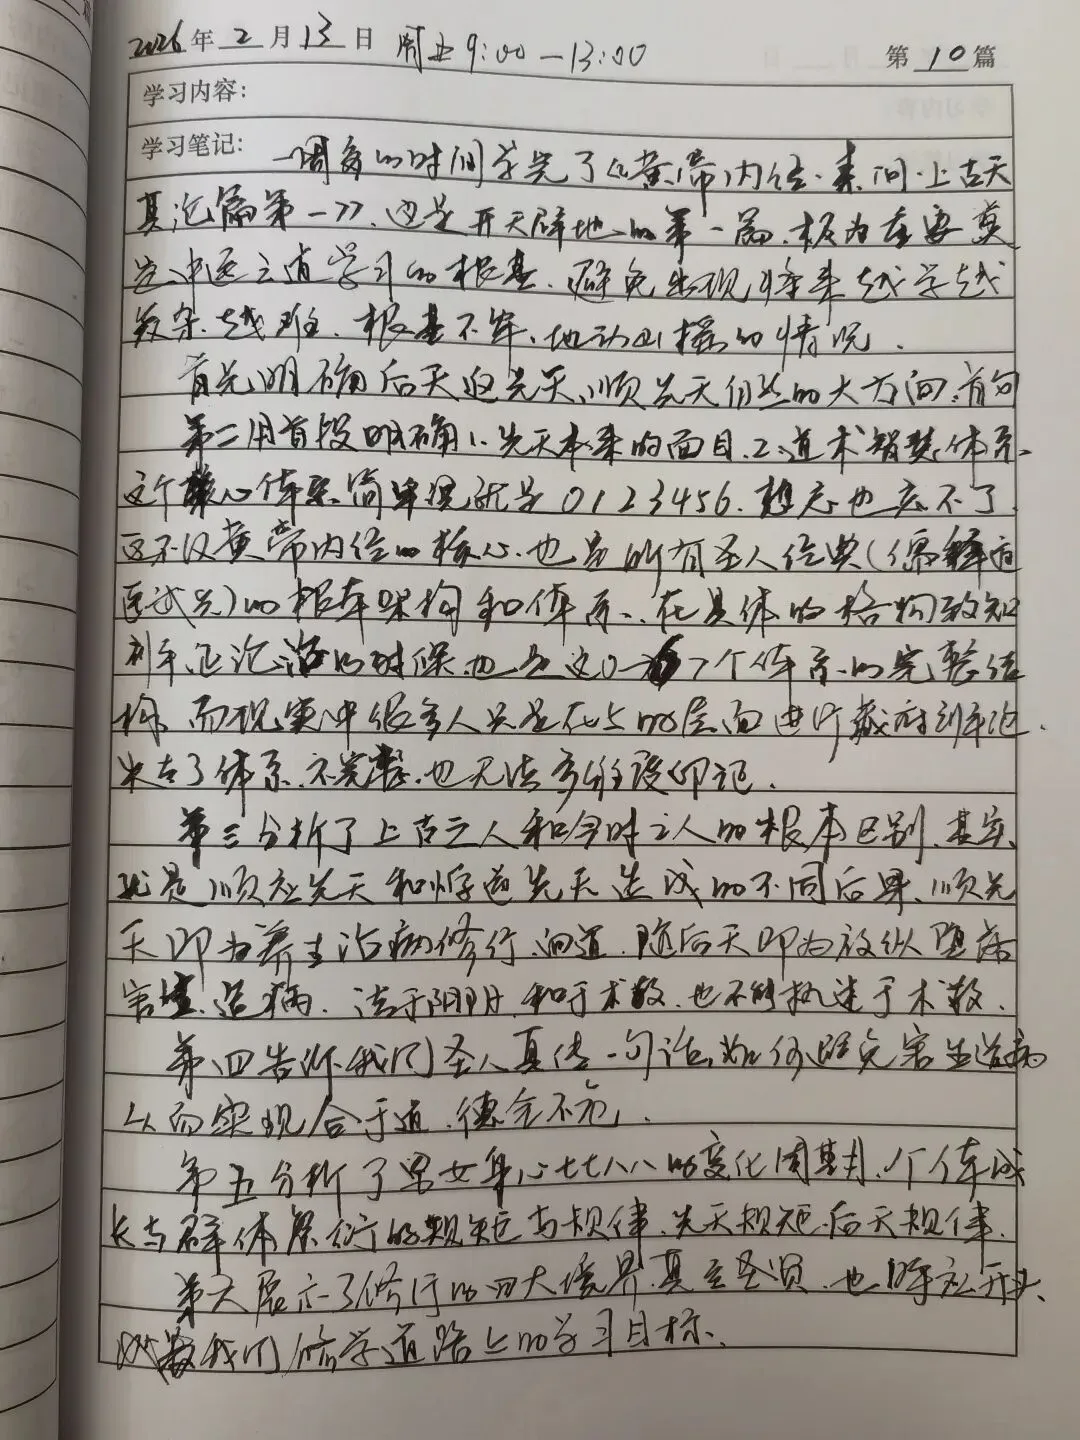 2026年2月13日 周五9:00—13:00 第10篇
学习内容：
学习笔记：一周多的时间学完了《黄帝内经·素问·上古天
真论篇第一》，这是开天辟地的第一篇，极为重要奠
定中医之道学习的根基，避免出现将来越学越
复杂、越难、根基不牢、地动山摇的情况。
首先明确后天返先天、顺先天自然的大方向，首句
第二用首段明确1、先天本来的面目，2、道术智慧体系、
这个核心体系简单说就是0123456，想忘也忘不了
这不仅黄帝内经的核心，也是所有圣人经典（儒释道
医武兵）的根本架构和体系，在具体的格物致知
判平正论治的时候也是这0—67个体系的完整结
构，而现实中很多人只是在5的层面进行藏府判平论、
失去了体系不完整，也无法多维度印记。
第三分析了上古之人和今时之人的根本区别，其实
就是顺应先天和悖逆先天造成的不同后果，顺先
天即为养生治病修行、向道，随后天即为放纵堕落
害生、造病，法于阴阳，和于术数，也不能执迷于术数。
第四告诉我们圣人真传一句话，如何避免害生造病
从而实现合于道、德全不危。
第五分析了男女身心七七八八的变化周期，个体成
长与群体繁衍的规矩与规律，先天规矩、后天规律。
第六展示了修行的四大境界真至圣贤，也呼应开头、
我们修学道路上的学习目标。